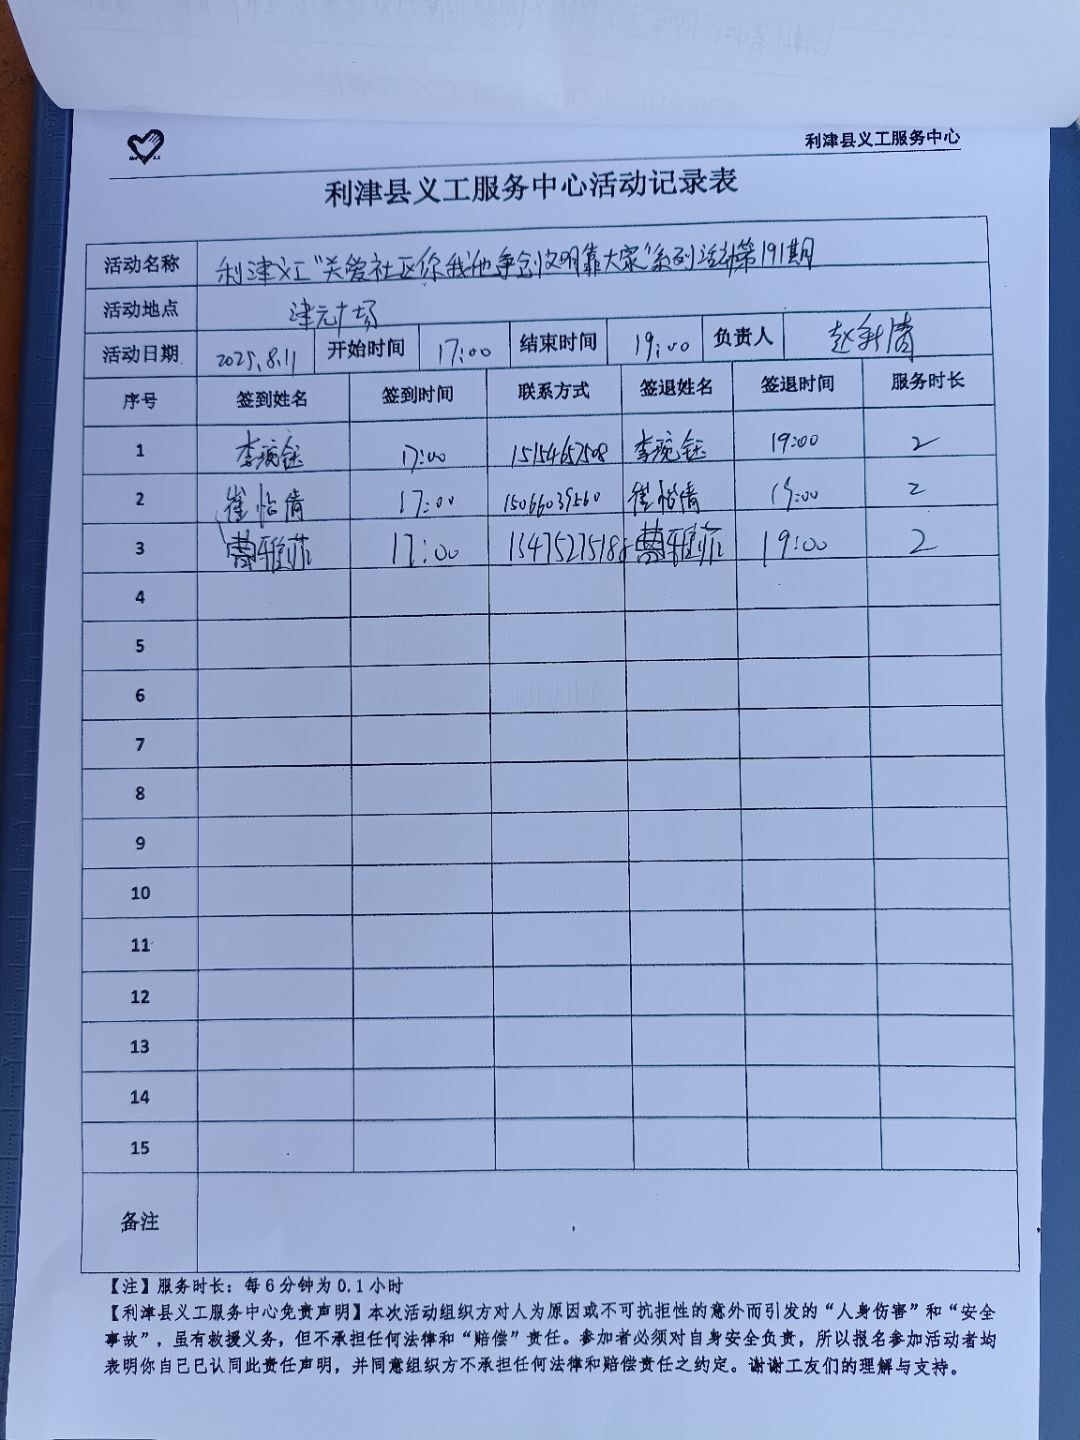 利津县义工服务中心
利津县义工服务中心活动记录表
活动名称 利津义工"关爱社区你我他争创文明靠大家"系列活动第191期
活动地点 津元广场
活动日期 2025.8.11 开始时间 17:00 结束时间 19:00 负责人 赵新清
序号 签到姓名 签到时间 联系方式 签退姓名 签退时间 服务时长
1 李琬钰 17:00 李琬钰 19:00 2
2 崔怡倩 17:00 15066039560 崔怡倩 19:00 2
3 曹雅菲 17:00 曹雅菲 19:00 2
4
5
6
7
8
9
10
11
12
13
14
15
备注
【注】服务时长：每6分钟为0.1小时
【利津县义工服务中心免责声明】本次活动组织方对人为原因或不可抗拒性的意外而引发的“人身伤害”和“安全
事故”，虽有救援义务，但不承担任何法律和“赔偿”责任。参加者必须对自身安全负责，所以报名参加活动者均
表明你自己已认同此责任声明，并同意组织方不承担任何法律和赔偿责任之约定。谢谢工友们的理解与支持。